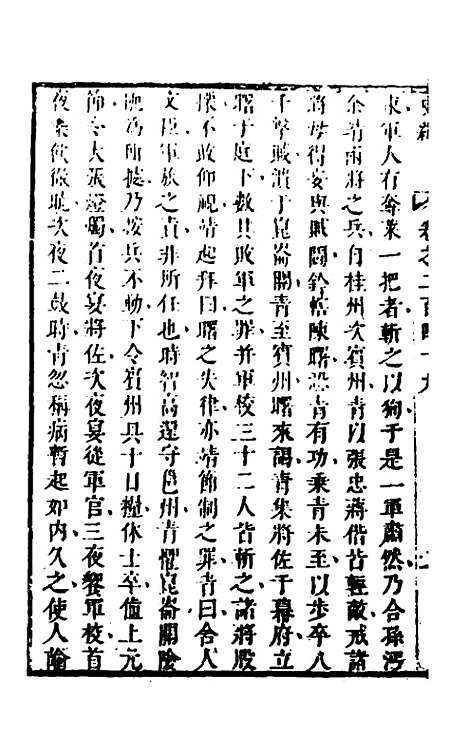 卷之二百四十九
東軍人有奪菜一把者斬之以狥于是一軍肅然乃合孫沔
余靖兩將之兵自桂州次賓州青以張忠蔣偕皆輕敵戒諸
將毋得妄與賊鬬鈐轄陳曙恐青有功乘青未至以步卒八
千擊賊潰于崑崙關青至賓州曙來謁青集將佐于幕府立
曙于庭下數其敗軍之罪并軍校三十二人皆斬之諸將股
慄不敢仰視靖起拜曰曙之失律亦靖節制之罪青曰舍人
文臣軍旅之責非所任也時智高還守邕州青懼崑崙關險
阨爲所據乃按兵不動下令賓州具十日糧休士卒值上元
節令大張燈燭首夜宴將佐次夜宴從軍官三夜饗軍校首
夜樂飲徹曉次夜二鼓時青忽稱病暫起如內久之使人諭